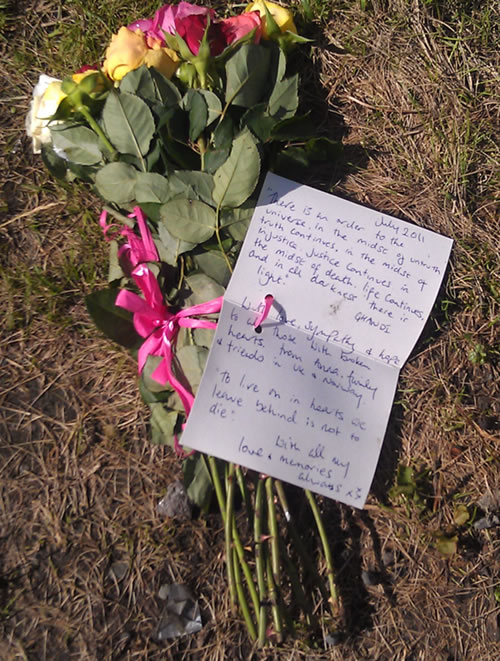 July 2011
"There is an order to the
universe, in the midst of untruth
truth continues, in the midst of
injustice justice continues in
the midst of death life continues,
and in all darkness there is
light."
GHANDI
love, sympathy & hope
to all those with broken
hearts, from three, family
& friends in UK & Norway.
"To live on in hearts we
leave behind is not to
die."
With all my
love & memories
always x